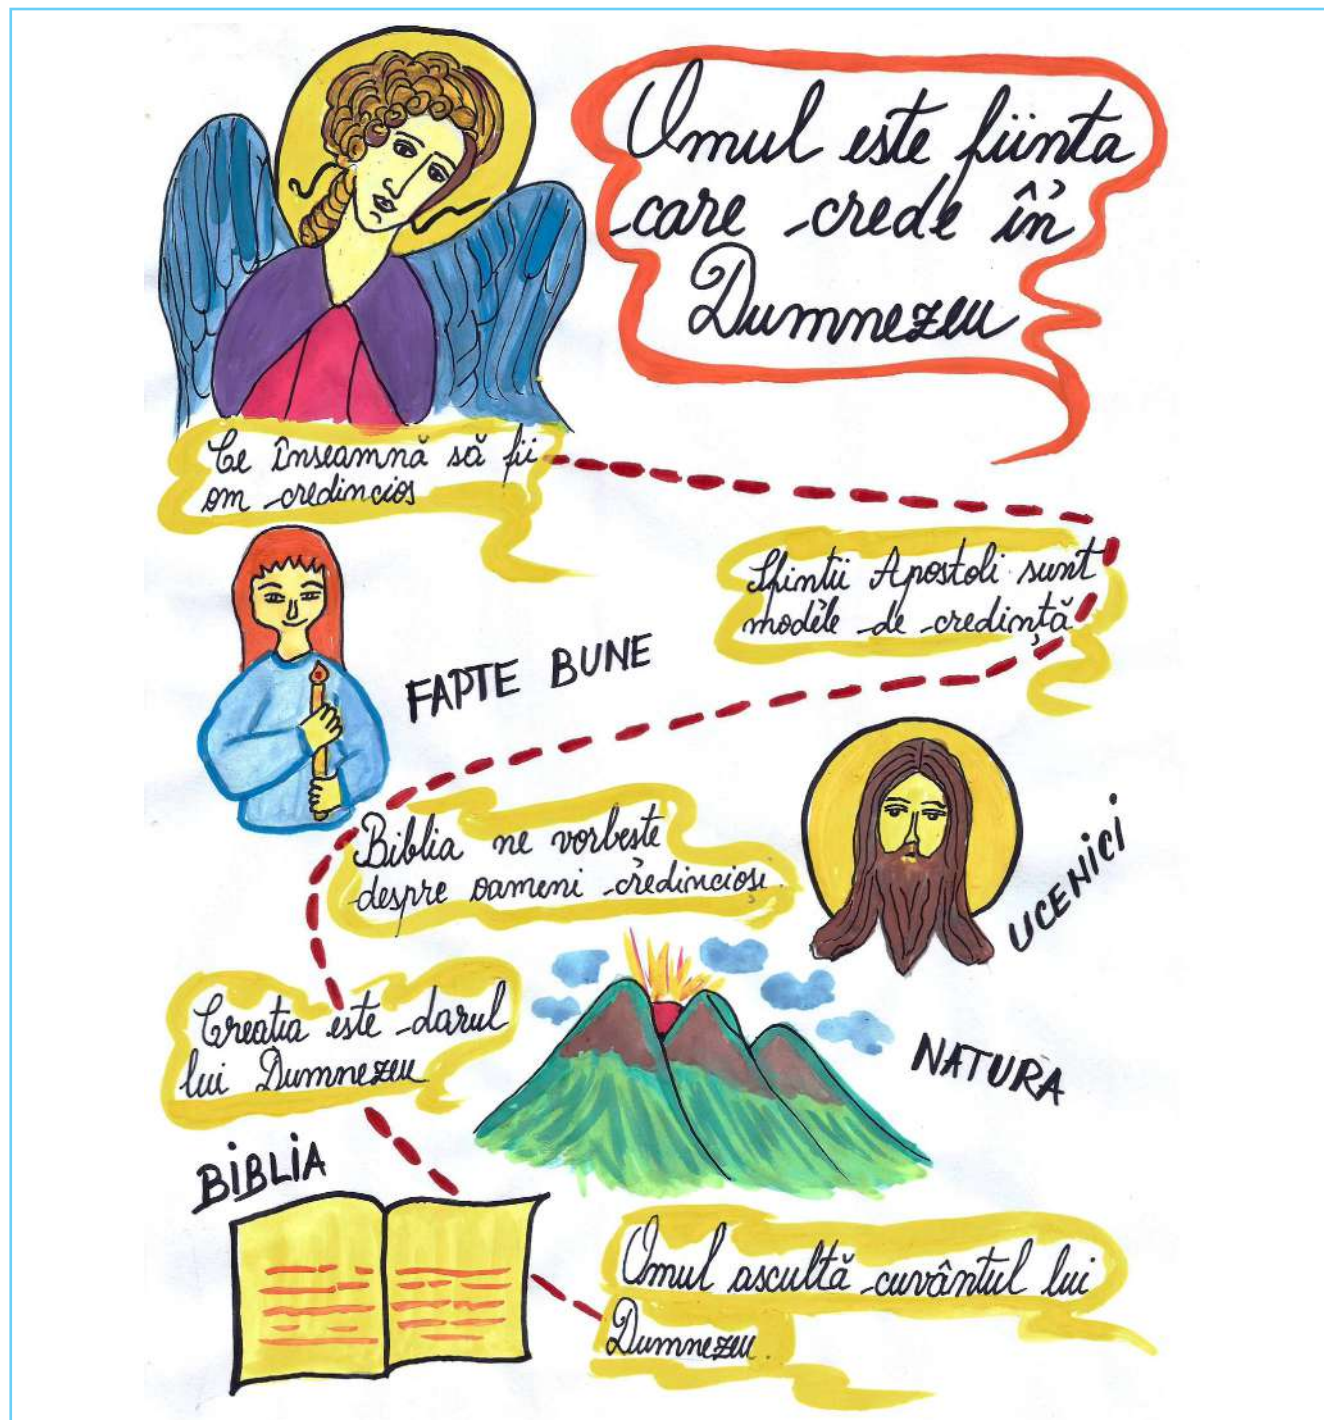 Omul este ființa
care crede în
Dumnezeu
Ce înseamnă să fii
om credincios
Sfinții Apostoli sunt
modele de credință
FAPTE BUNE
Biblia ne vorbește
despre oameni credincioși.
UCENICI
Creația este darul
lui Dumnezeu
NATURA
BIBLIA
Omul ascultă cuvântul lui
Dumnezeu.